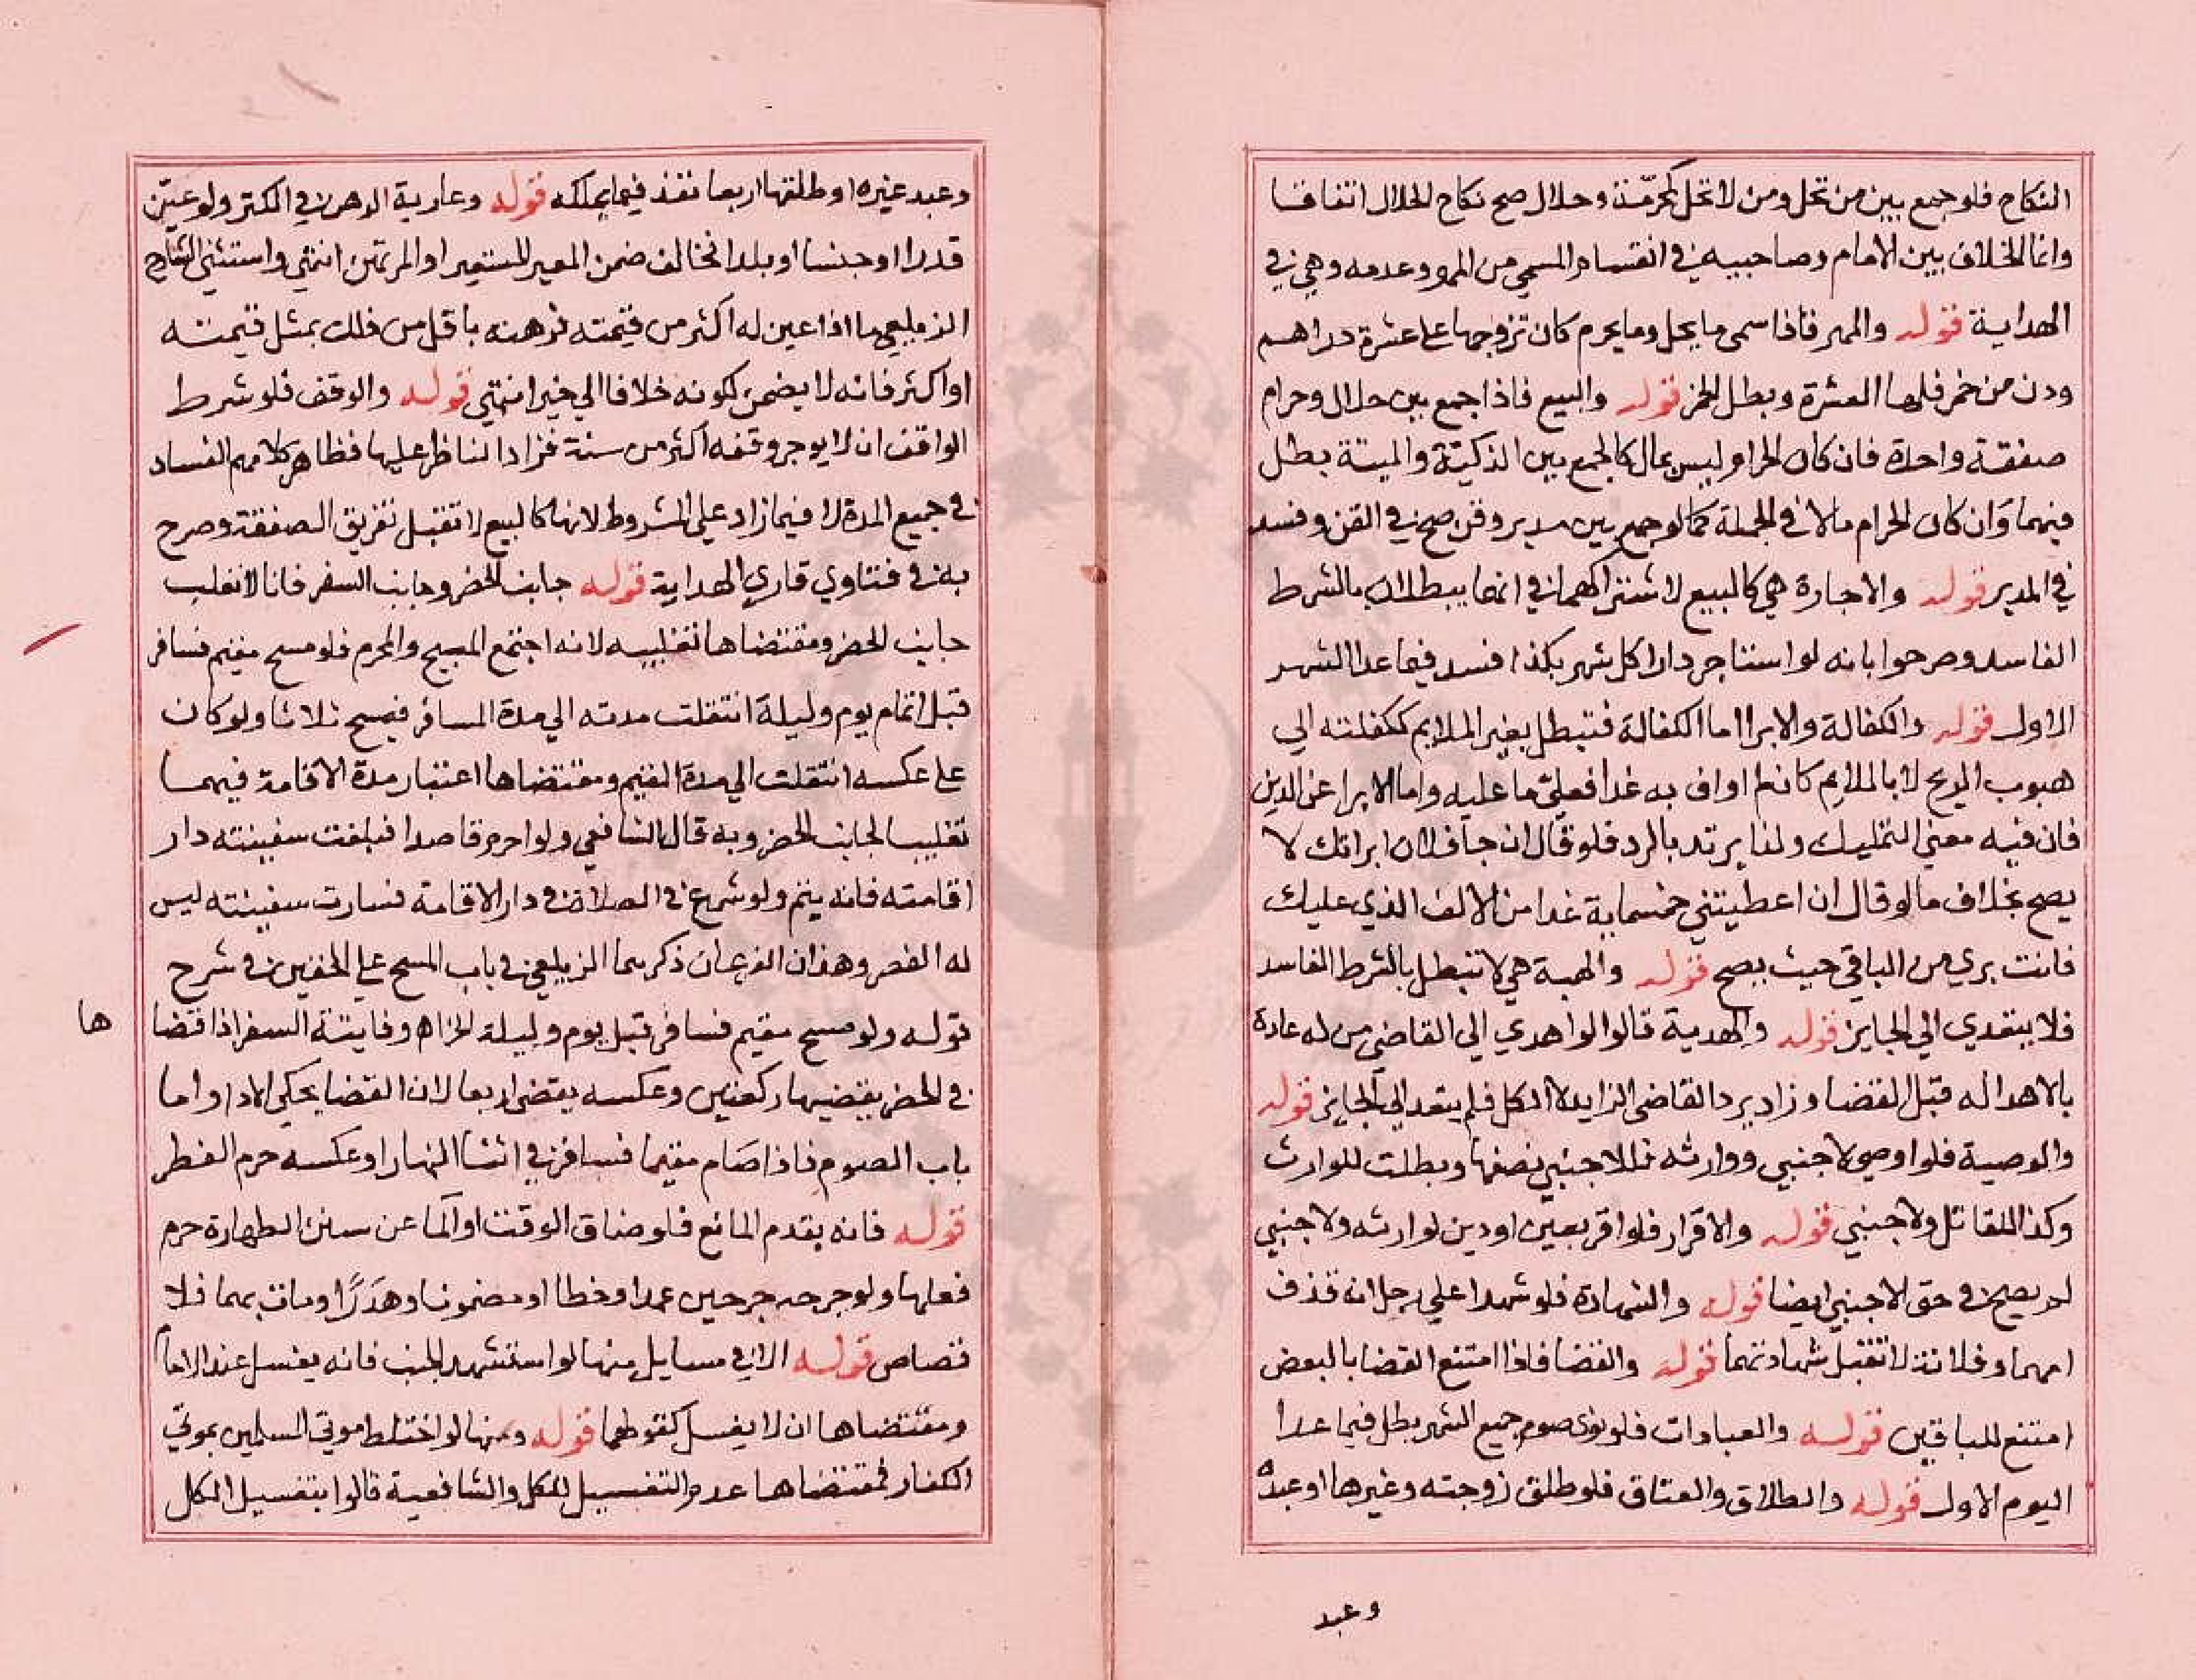 النكاح فلو جمع بين من تحل ومن لا تحل كمحرمة وحلال صح نكاح الحلال اتفاقا
وانما الخلاف بين الامام وصاحبيه في انقسام المسمى من المهر وعدمه وهي في
الهداية قوله والمهر فاذا سمى ما يحل وما يحرم كان تزوجها على عشرة دراهم
ودن من خمر فلها العشرة وبطل الخمر قوله والبيع فاذا جمع بين حلال وحرام
صفقة واحدة فان كان الحرام ليس بمال كالجمع بين الذكية والميتة بطل
فيهما وان كان الحرام مالا في الجملة كما لو جمع بين مدبر وقن صح في القن وفسد
في المدبر قوله والاجارة هي كالبيع لاشتراكهما في انهما يبطلان بالشرط
الفاسد وصرحوا بانه لو استاجر دارا كل شهر بكذا فسد فيما عدا الشهر
الاول قوله والكفالة والابرا اما الكفالة فتبطل بغير الملايم ككفلته الى
هبوب الريح لا بالملايم كان لم اواف به غدا فعلي ما عليه واما الابرا عن الدين
فان فيه معنى التمليك ولذا يرتد بالرد فلو قال ان جا فلان ابراتك لا
يصح بخلاف ما لو قال ان اعطيتني خمسماية غدا من الالف الذي عليك
فانت بري من الباقي حيث يصح قوله والهبة هي لا تبطل بالشرط الفاسد
فلا يتعدى الى الجايز قوله والهدية قالوا لو اهدي الى القاضي من له عادة
بالاهدا له قبل القضا وزاد يرد القاضي الزايد لا الكل فلم يتعد الى الجايز قوله
والوصية فلو اوصى لاجنبي ووارثه فللاجنبي نصفها وبطلت للوارث
وكذا للقاتل ولاجنبي قوله والاقرار فلو اقر بعين او دين لوارثه ولاجنبي
لم يصح في حق الاجنبي ايضا قوله والشهادة فلو شهدا على رجل انه قذف
امهما وفلانة لا تقبل شهادتهما قوله والقضا فاذا امتنع القضا بالبعض
امتنع للباقين قوله والعبادات فلو نوى صوم جميع الشهر بطل فيما عدا
اليوم الاول قوله والطلاق والعتاق فلو طلق زوجته وغيرها او عبده
وعبد
وعبد غيره او طلقها اربعا نفذ فيما يملكه قوله وعارية الرهن في الكنز ولو عين
قدرا او جنسا او بلدا فخالف ضمن المعير المستعير او المرتهن انتهى واستثنى الشارح
الزيلعي ما اذا عين له اكثر من قيمته فرهنه باقل من ذلك بمثل قيمته
او اكثر فانه لا يضمن لكونه خلافا الى خير انتهى قوله والوقف فلو شرط
الواقف ان لا يوجر وقفه اكثر من سنة فزاد الناظر عليها فظاهر كلامهم الفساد
في جميع المدة لا فيما زاد على المشروط لانها كالبيع لا تقبل تفريق الصفقة وصرح
به في فتاوي قاري الهداية قوله جانب الحضر وجانب السفر فانا لا نغلب
جانب الحضر ومقتضاها تغليبه لانه اجتمع المبيح والمحرم فلو مسح مقيم فسافر
قبل اتمام يوم وليلة انتقلت مدته الى مدة المسافر فيمسح ثلاثا ولو كان
على عكسه انتقلت الى مدة المقيم ومقتضاها اعتبار مدة الاقامة فيهما
تغليبا لجانب الحضر وبه قال الشافعي ولو احرم قاصدا فبلغت سفينته دار
اقامته فانه يتم ولو شرع في الصلاة في دار الاقامة فسارت سفينته ليس
له القصر وهذان الفرعان ذكرهما الزيلعي في باب المسح على الخفين في شرح
قوله ولو مسح مقيم فسافر قبل يوم وليلة الخ اه وفايتة السفر اذا قضا ها
في الحضر يقضيها ركعتين وعكسه يقضي اربعا لان القضا يحكي الادا واما
باب الصوم فاذا صام مقيما فسافر في اثنا النهار او عكسه حرم الفطر
قوله فانه يقدم المانع فلو ضاق الوقت او الما عن سنن الطهارة حرم
فعلها ولو جرحه جرحين عمدا وخطا او مضمونا وهدرا ومات بهما فلا
قصاص قوله الا في مسايل منها لو استشهد الجنب فانه يغسل عند الامام
ومقتضاها ان لا يغسل كقولهما قوله ومنها لو اختلط موتى المسلمين بموتى
الكفار فمقتضاها عدم التغسيل للكل والشافعية قالوا بتغسيل الكل